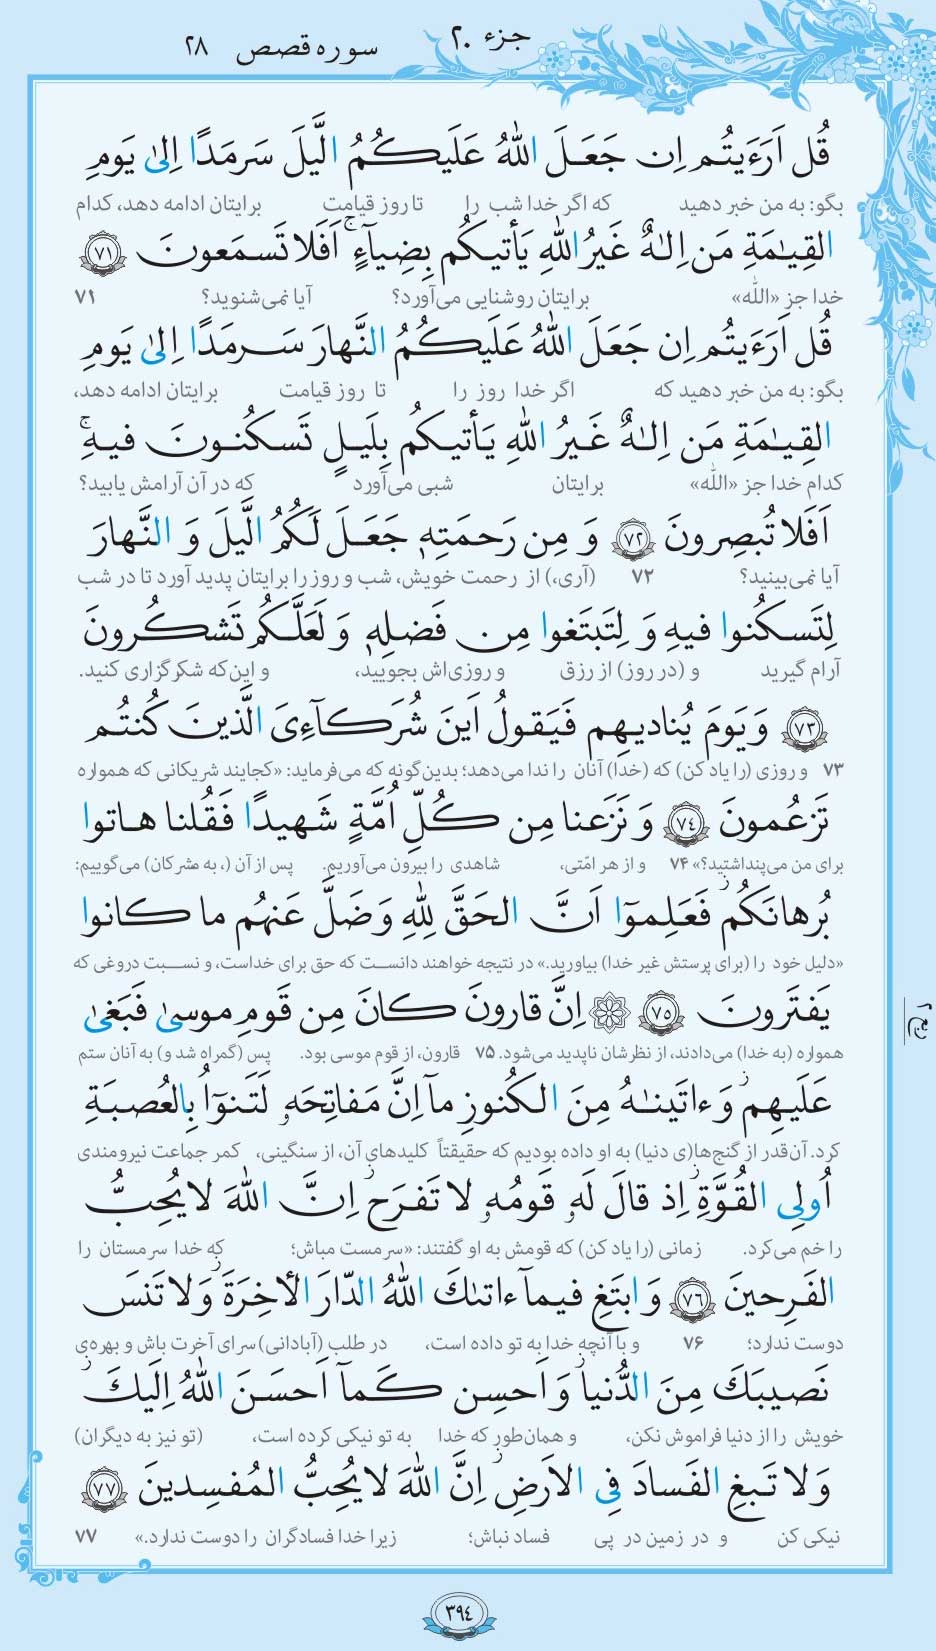 جزء ۲۰
سوره قصص ۲۸
قُل اَرَءَيتُم اِن جَعَلَ اللّٰهُ عَلَيكُمُ الَّيلَ سَرمَدًا اِلىٰ يَومِ
بگو: به من خبر دهید که اگر خدا شب را تا روز قیامت برایتان ادامه دهد، کدام
القِيٰمَةِ مَن اِلٰهٌ غَيرُ اللّٰهِ يَأتيكُم بِضِيآءٍ ۚ اَفَلا تَسمَعونَ ﴿۷۱﴾
خدا جز «الله» برایتان روشنایی می‌آورد؟ آیا نمی‌شنوید؟ ۷۱
قُل اَرَءَيتُم اِن جَعَلَ اللّٰهُ عَلَيكُمُ النَّهارَ سَرمَدًا اِلىٰ يَومِ
بگو: به من خبر دهید که اگر خدا روز را تا روز قیامت برایتان ادامه دهد،
القِيٰمَةِ مَن اِلٰهٌ غَيرُ اللّٰهِ يَأتيكُم بِلَيلٍ تَسكُنونَ فيهِ ۚ
کدام خدا جز «الله» برایتان شبی می‌آورد که در آن آرامش یابید؟
اَفَلا تُبصِرونَ ﴿۷۲﴾ وَ مِن رَحمَتِهٖ جَعَلَ لَكُمُ الَّيلَ وَ النَّهارَ
آیا نمی‌بینید؟ ۷۲ (آری،) از رحمت خویش، شب و روز را برایتان پدید آورد تا در شب
لِتَسكُنوا فيهِ وَ لِتَبتَغوا مِن فَضلِهٖ وَ لَعَلَّكُم تَشكُرونَ
آرام گیرید و (در روز) از رزق و روزی‌اش بجویید، و این‌که شکرگزاری کنید.
﴿۷۳﴾ وَ يَومَ يُناديهِم فَيَقولُ اَينَ شُرَكآءِىَ الَّذينَ كُنتُم
۷۳ و روزی (را یاد کن) که (خدا) آنان را ندا می‌دهد؛ بدین‌گونه که می‌فرماید: «کجایند شریکانی که همواره
تَزعُمونَ ﴿۷۴﴾ وَ نَزَعنا مِن كُلِّ اُمَّةٍ شَهيدًا فَقُلنا هاتوا
برای من می‌پنداشتید؟» ۷۴ و از هر امّتی، شاهدی را بیرون می‌آوریم. پس از آن (، به مشرکان) می‌گوییم:
بُرهانَكُم فَعَلِموٓا اَنَّ الحَقَّ لِلّٰهِ وَ ضَلَّ عَنهُم ما كانوا
«دلیل خود را (برای پرستش غیر خدا) بیاورید.» در نتیجه خواهند دانست که حق برای خداست، و نسبت دروغی که
يَفتَرونَ ﴿۷۵﴾ ۞ اِنَّ قارونَ كانَ مِن قَومِ موسىٰ فَبَغىٰ
همواره (به خدا) می‌دادند، از نظرشان ناپدید می‌شود. ۷۵ قارون، از قوم موسی بود. پس (گمراه شد و) به آنان ستم
عَلَيهِم ۖ وَ ءاتَينٰهُ مِنَ الكُنوزِ مآ اِنَّ مَفاتِحَهٗ لَتَنوٓأُ بِالعُصبَةِ
کرد. آن‌قدر از گنج‌ها(ی دنیا) به او داده بودیم که حقیقتاً کلیدهای آن، از سنگینی، کمر جماعت نیرومندی
اُولِى القُوَّةِ اِذ قالَ لَهٗ قَومُهٗ لا تَفرَح ۖ اِنَّ اللّٰهَ لا يُحِبُّ
را خم می‌کرد. زمانی (را یاد کن) که قومش به او گفتند: «سرمست مباش؛ که خدا سرمستان را
الفَرِحينَ ﴿۷۶﴾ وَ ابتَغِ فيمآ ءاتىٰكَ اللّٰهُ الدّارَ الأٰخِرَةَ ۖ وَ لا تَنسَ
دوست ندارد؛ ۷۶ و با آنچه خدا به تو داده است، در طلب (آبادانی) سرای آخرت باش و بهره‌ی
نَصيبَكَ مِنَ الدُّنيا ۖ وَ اَحسِن كَمآ اَحسَنَ اللّٰهُ اِلَيكَ ۖ
خویش را از دنیا فراموش نکن، و همان‌طور که خدا به تو نیکی کرده است، (تو نیز به دیگران)
وَ لا تَبغِ الفَسادَ فِى الاَرضِ ۖ اِنَّ اللّٰهَ لا يُحِبُّ المُفسِدينَ ﴿۷۷﴾
نیکی کن و در زمین در پی فساد نباش؛ زیرا خدا فسادگران را دوست ندارد.» ۷۷
۳۹۴